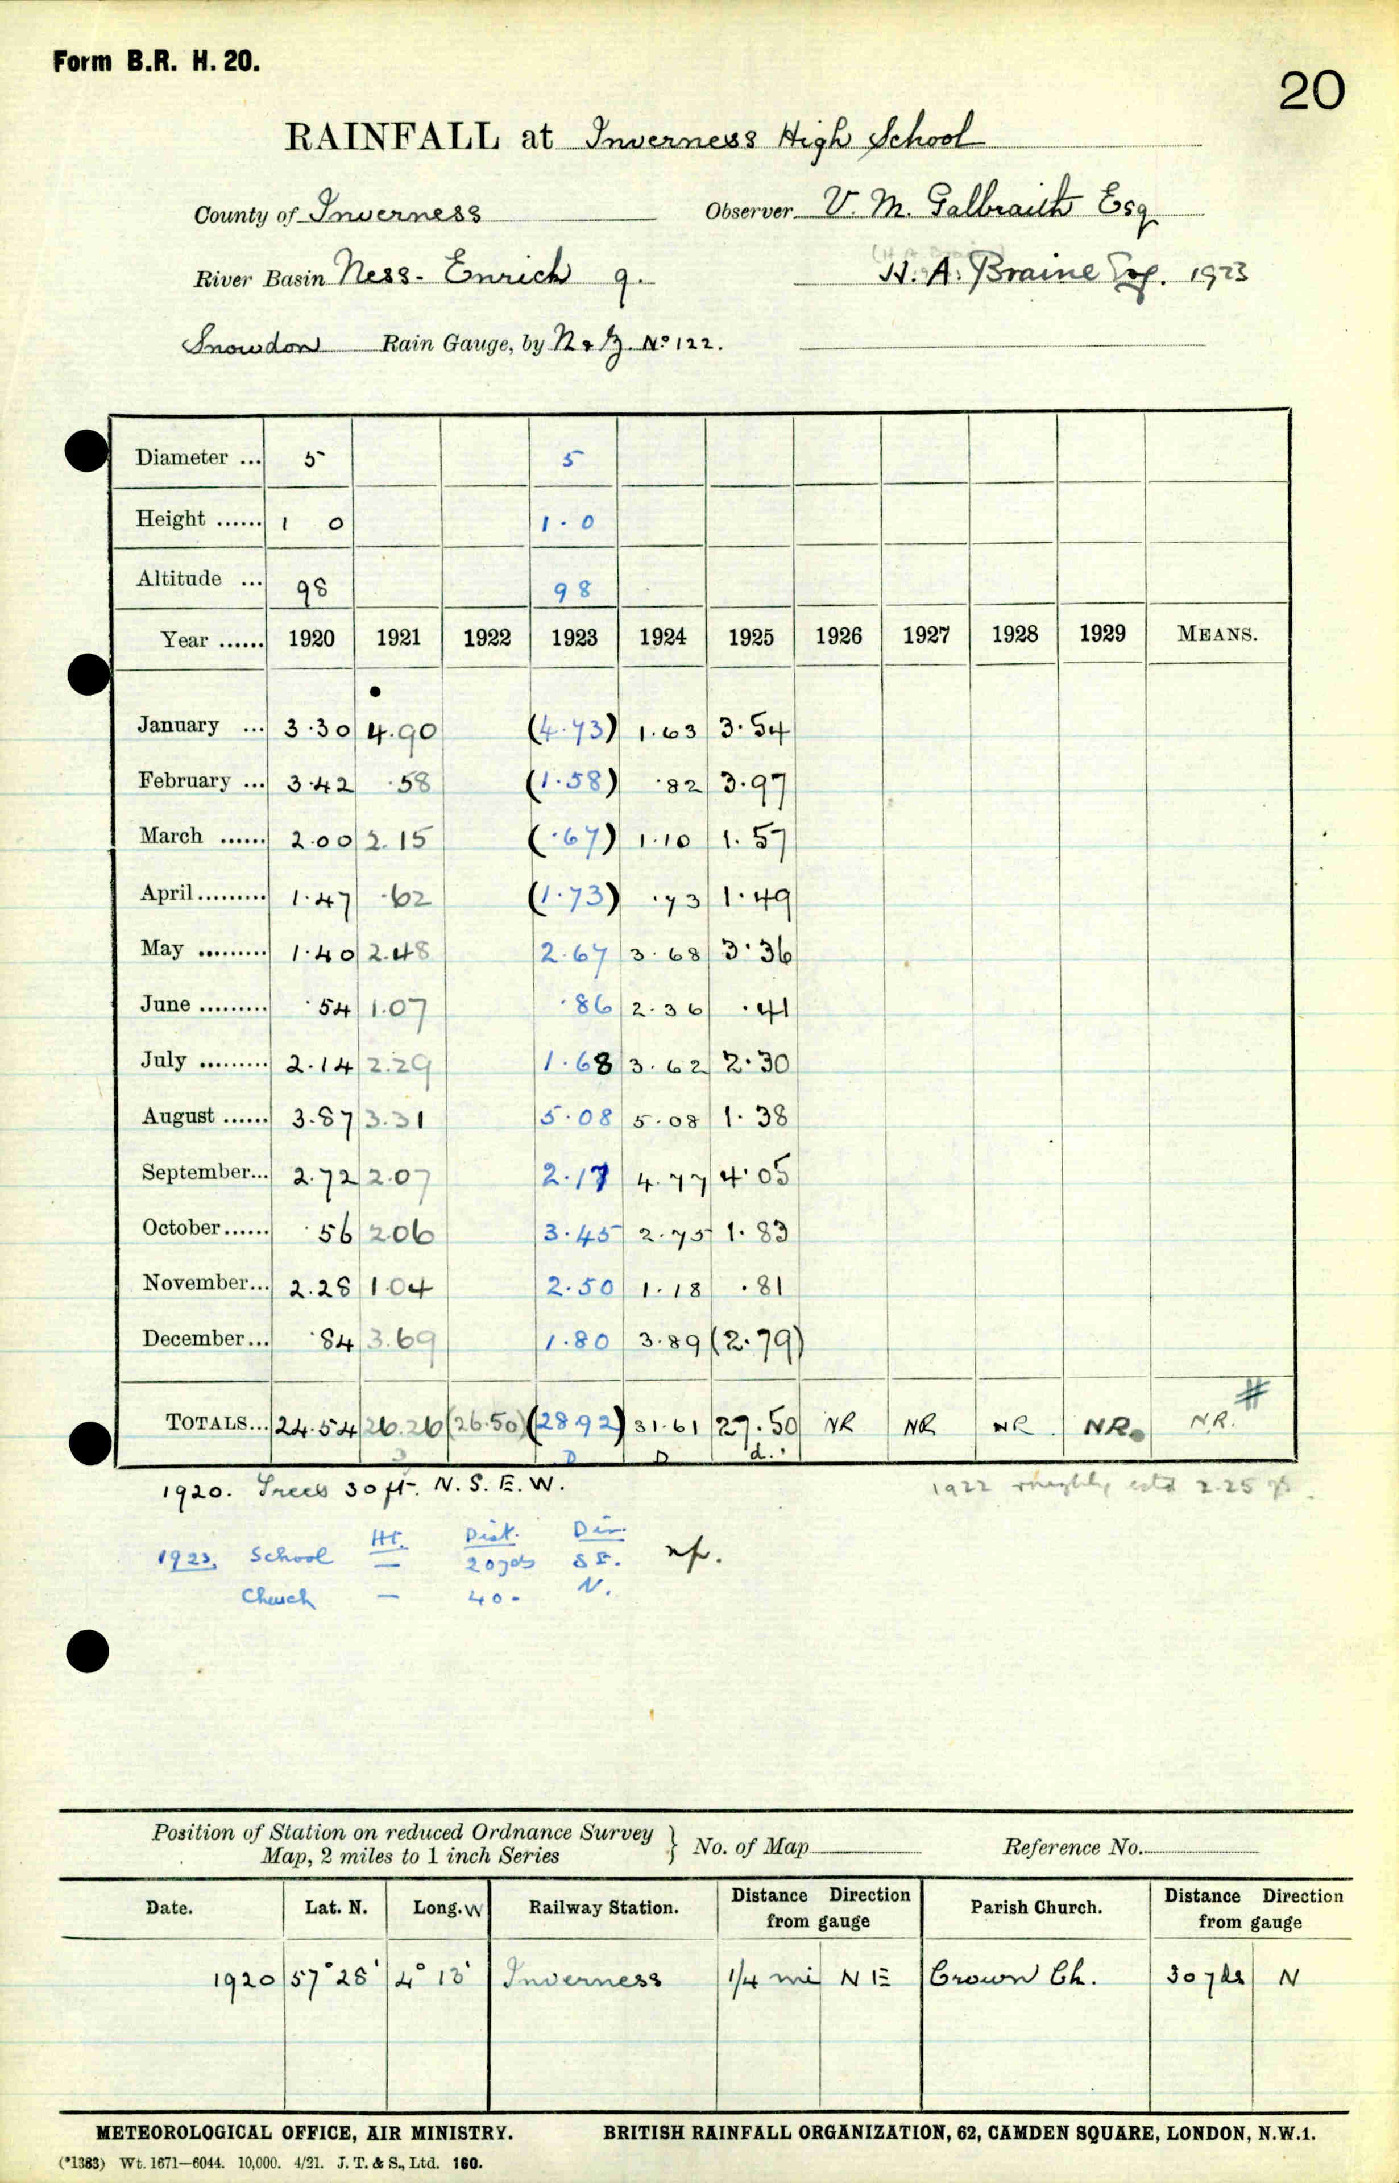 Form B.R. H. 20.
20
RAINFALL at Inverness High School
County of Inverness Observer V. M. Galbraith Esq
River Basin Ness - Enrick 9. H. A. Braine Esq. 1923
Snowdon Rain Gauge, by N & Z. No 122.
Diameter ... 5 5
Height ...... 1 0 1.0
Altitude ... 98 98
Year ...... 1920 1921 1922 1923 1924 1925 1926 1927 1928 1929 MEANS.
January ... 3.30 4.90 (4.73) 1.63 3.54
February ... 3.42 .58 (1.58) .82 3.97
March ...... 2.00 2.15 (.67) 1.10 1.57
April ......... 1.47 .62 (1.73) .73 1.49
May ......... 1.40 2.48 2.67 3.68 3.36
June ......... .54 1.07 .86 2.36 .41
July ......... 2.14 2.29 1.68 3.62 2.30
August ...... 3.87 3.31 5.08 5.08 1.38
September... 2.72 2.07 2.17 4.77 4.05
October...... .56 2.06 3.45 2.75 1.83
November... 2.28 1.04 2.50 1.18 .81
December... .84 3.69 1.80 3.89 (2.79)
TOTALS... 24.54 26.26 (26.50) (28.92) 31.61 27.50 NR NR NR NR. NR. #
D D d.
1920. Trees 30 ft. N. S. E. W. 1922 roughly estd 2.25
Ht. Dist. Dir.
1923. School — 20 yds SE. nf.
Church — 40 - N.
Position of Station on reduced Ordnance Survey Map, 2 miles to 1 inch Series } No. of Map Reference No.
Date. Lat. N. Long. W Railway Station. Distance Direction from gauge Parish Church. Distance Direction from gauge
1920 57° 28' 4° 13' Inverness 1/4 mi NE Crown Ch. 30 yds N
METEOROLOGICAL OFFICE, AIR MINISTRY. BRITISH RAINFALL ORGANIZATION, 62, CAMDEN SQUARE, LONDON, N.W.1.
(*1383) Wt. 1671—6044. 10,000. 4/21. J. T. & S., Ltd. 160.